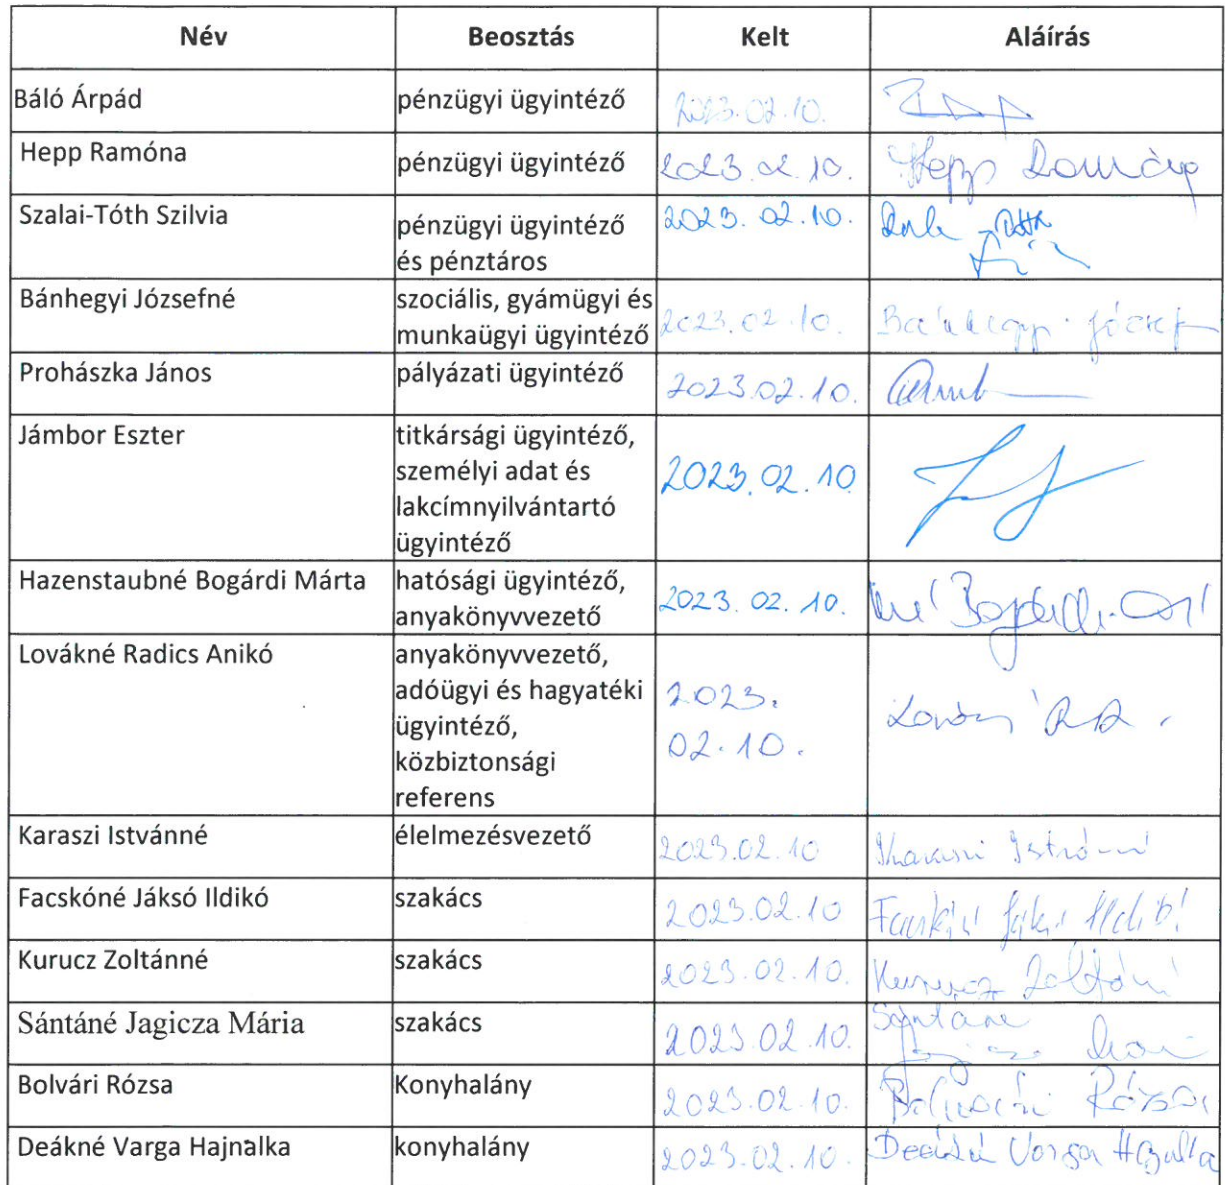 Név Beosztás Kelt Aláírás
Báló Árpád pénzügyi ügyintéző 2023.02.10.
Hepp Ramóna pénzügyi ügyintéző 2023.02.10. Hepp Ramóna
Szalai-Tóth Szilvia pénzügyi ügyintéző 2023.02.10.
és pénztáros
Bánhegyi Józsefné szociális, gyámügyi és
munkaügyi ügyintéző 2023.02.10. Bánhegyi József
Prohászka János pályázati ügyintéző 2023.02.10.
Jámbor Eszter titkársági ügyintéző,
személyi adat és 2023.02.10
lakcímnyilvántartó
ügyintéző
Hazenstaubné Bogárdi Márta hatósági ügyintéző,
anyakönyvvezető 2023. 02. 10.
Lovákné Radics Anikó anyakönyvvezető,
adóügyi és hagyatéki 2023.
ügyintéző, 02.10.
közbiztonsági
referens
Karaszi Istvánné élelmezésvezető 2023.02.10 Karaszi Istvánné
Facskóné Jáksó Ildikó szakács 2023.02.10 Facskóné Jáksó Ildikó
Kurucz Zoltánné szakács 2023.02.10. Kurucz Zoltánné
Sántáné Jagicza Mária szakács 2023.02.10. Sántáné
Bolvári Rózsa Konyhalány 2023.02.10. Bolvári Rózsa
Deákné Varga Hajnalka konyhalány 2023.02.10. Deákné Varga Hajnalka